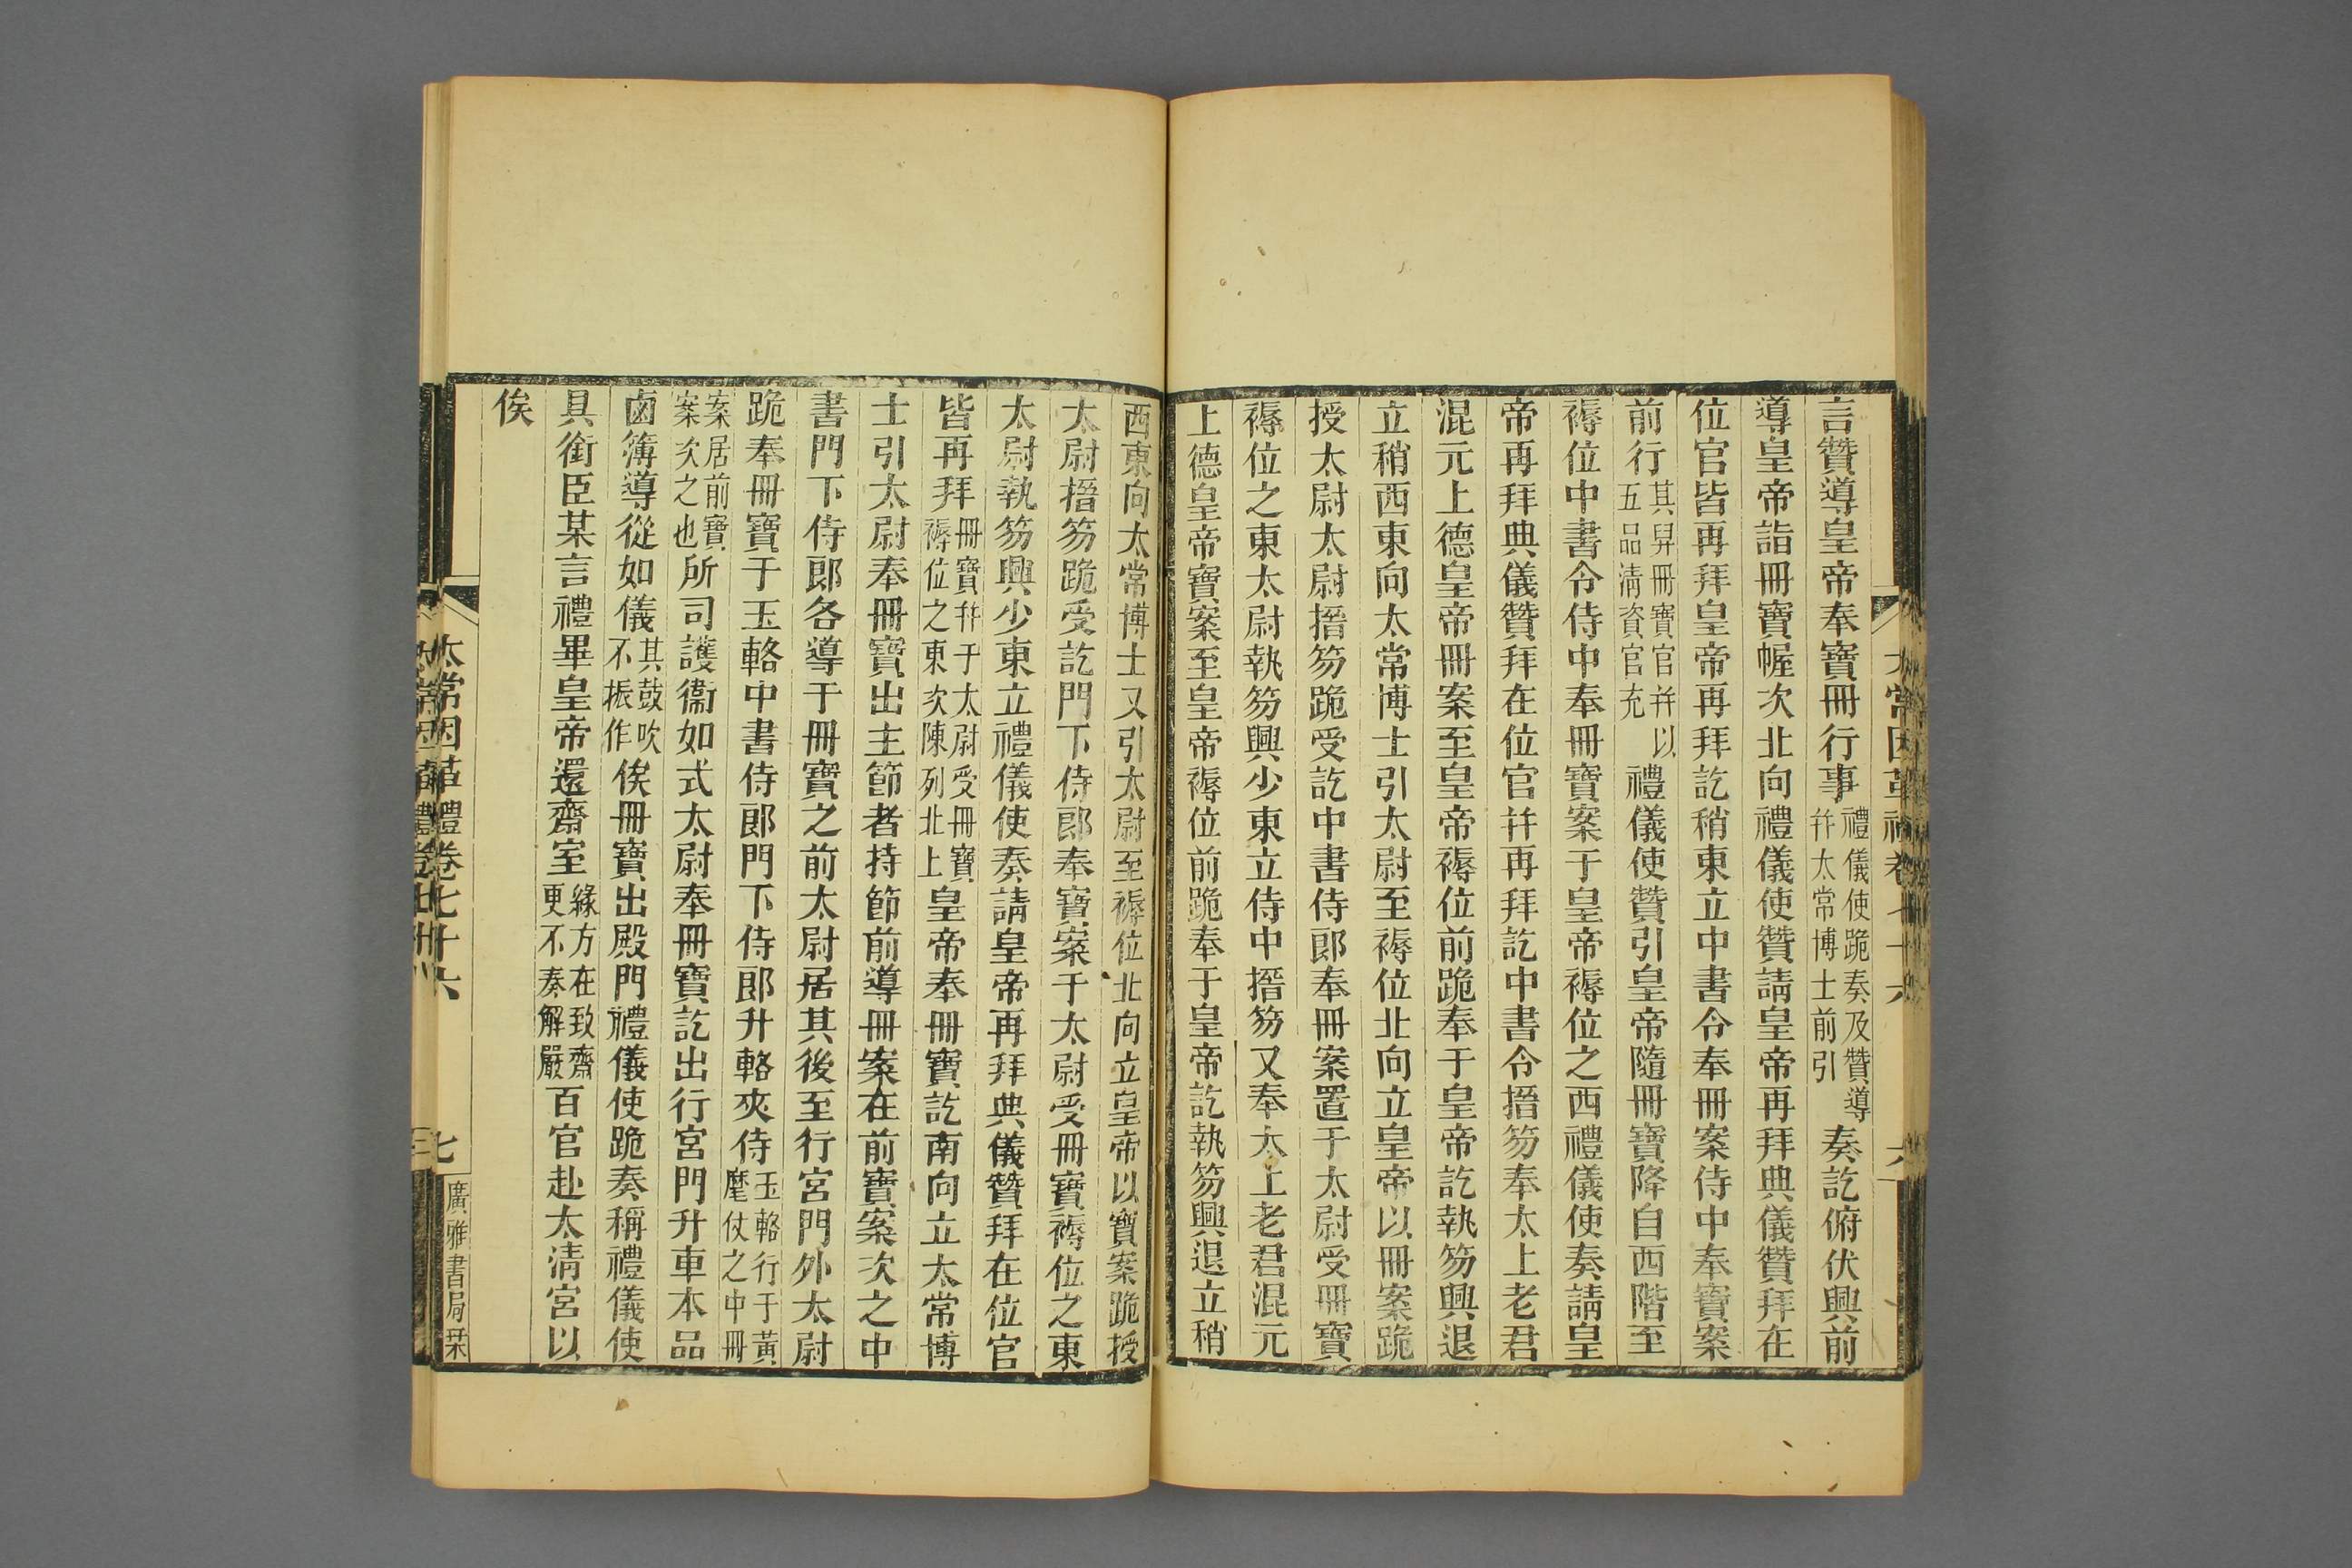 言贊導皇帝奉寶冊行事禮儀使跪奏及贊導幷太常博士前引奏訖俯伏興前
導皇帝詣冊寶幄次北向禮儀使贊請皇帝再拜典儀贊拜在
位官皆再拜皇帝再拜訖稍東立中書令奉冊案侍中奉寶案
前行其舁冊寶官幷以五品淸資官充禮儀使贊引皇帝隨冊寶降自西階至
褥位中書令侍中奉冊寶案于皇帝褥位之西禮儀使奏請皇
帝再拜典儀贊拜在位官幷再拜訖中書令搢笏奉太上老君
混元上德皇帝冊案至皇帝褥位前跪奉于皇帝訖執笏興退
立稍西東向太常博士引太尉至褥位北向立皇帝以冊案跪
授太尉太尉搢笏跪受訖中書侍郎奉冊案置于太尉受冊寶
褥位之東太尉執笏興少東立侍中搢笏又奉太上老君混元
上德皇帝寶案至皇帝褥位前跪奉于皇帝訖執笏興退立稍
西東向太常博士又引太尉至褥位北向立皇帝以寶案跪授
太尉搢笏跪受訖門下侍郎奉寶案于太尉受冊寶褥位之東
太尉執笏興少東立禮儀使奏請皇帝再拜典儀贊拜在位官
皆再拜冊寶幷于太尉受冊寶褥位之東次陳列北上皇帝奉冊寶訖南向立太常博
士引太尉奉冊寶出主節者持節前導冊案在前寶案次之中
書門下侍郎各導于冊寶之前太尉居其後至行宮門外太尉
跪奉冊寶于玉輅中書侍郎門下侍郎升輅夾侍玉輅行于黃麾仗之中冊
案居前寶案次之也所司護衞如式太尉奉冊寶訖出行宮門升車本品
鹵簿導從如儀其鼓吹不振作俟冊寶出殿門禮儀使跪奏稱禮儀使
具銜臣某言禮畢皇帝還齋室緣方在致齋更不奏解嚴百官赴太淸宮以
俟
太常因革禮卷七十六
七
廣雅書局栞